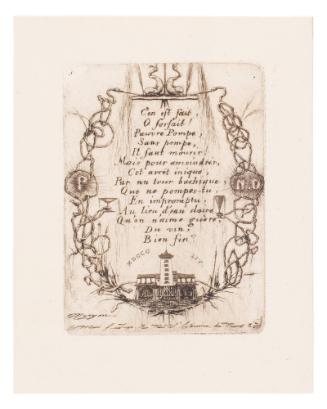 C'en est fait,
O forfait!
Pauvre Pompe,
Sans pompe,
Il faut mourir!
Mais pour amoindrir,
Cet arrêt inique,
Par un tour bachique,
Que ne pompes-tu
En impromptu,
Au lieu d'eau claire
Qu'on n'aime guère,
Du vin,
Bien fin?
P
N.D
MDCCC LIV